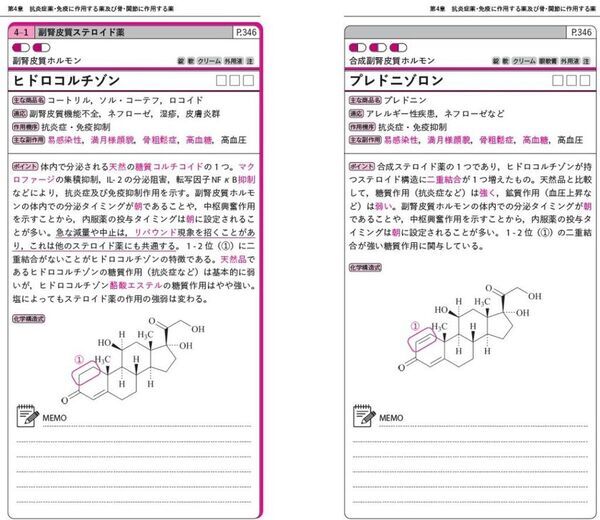 第4章 抗炎症薬・免疫に作用する薬及び骨・関節に作用する薬
4-1 副腎皮質ステロイド薬 P.346
副腎皮質ホルモン 錠 軟 クリーム 外用液 注
ヒドロコルチゾン
主な商品名 コートリル，ソル・コーテフ，ロコイド
適応 副腎皮質機能不全，ネフローゼ，湿疹，皮膚炎群
作用機序 抗炎症・免疫抑制
主な副作用 易感染性，満月様顔貌，骨粗鬆症，高血糖，高血圧
ポイント 体内で分泌される天然の糖質コルチコイドの1つ。マク
ロファージの集積抑制，IL-2の分泌阻害，転写因子NFκB抑制
などにより，抗炎症及び免疫抑制作用を示す。副腎皮質ホルモ
ンの体内での分泌タイミングが朝であることや，中枢興奮作用
を示すことから，内服薬の投与タイミングは朝に設定されるこ
とが多い。急な減量や中止は，リバウンド現象を招くことがあ
り，これは他のステロイド薬にも共通する。1-2位（①）に二
重結合がないことがヒドロコルチゾンの特徴である。天然品で
あるヒドロコルチゾンの糖質作用（抗炎症など）は基本的に弱
いが，ヒドロコルチゾン酪酸エステルの糖質作用はやや強い。
塩によってもステロイド薬の作用の強弱は変わる。
化学構造式
O
OH
H
HO
H₃C
OH
①
H₃C
H
H
H
O
MEMO
第4章 抗炎症薬・免疫に作用する薬及び骨・関節に作用する薬
P.346
合成副腎皮質ホルモン 錠 軟 クリーム 眼軟膏 外用液 注
プレドニゾロン
主な商品名 プレドニン
適応 アレルギー性疾患，ネフローゼなど
作用機序 抗炎症・免疫抑制
主な副作用 易感染性，満月様顔貌，骨粗鬆症，高血糖，高血圧
ポイント 合成ステロイド薬の1つであり，ヒドロコルチゾンが持
つステロイド構造に二重結合が1つ増えたもの。天然品と比較
して，糖質作用（抗炎症など）は強く，鉱質作用（血圧上昇な
ど）は弱い。副腎皮質ホルモンの体内での分泌タイミングが朝
であることや，中枢興奮作用を示すことから，内服薬の投与タ
イミングは朝に設定されることが多い。1-2位（①）の二重結
合が強い糖質作用に関与している。
化学構造式
O
OH
H
HO
H₃C
OH
①
H₃C
H
H
H
O
MEMO